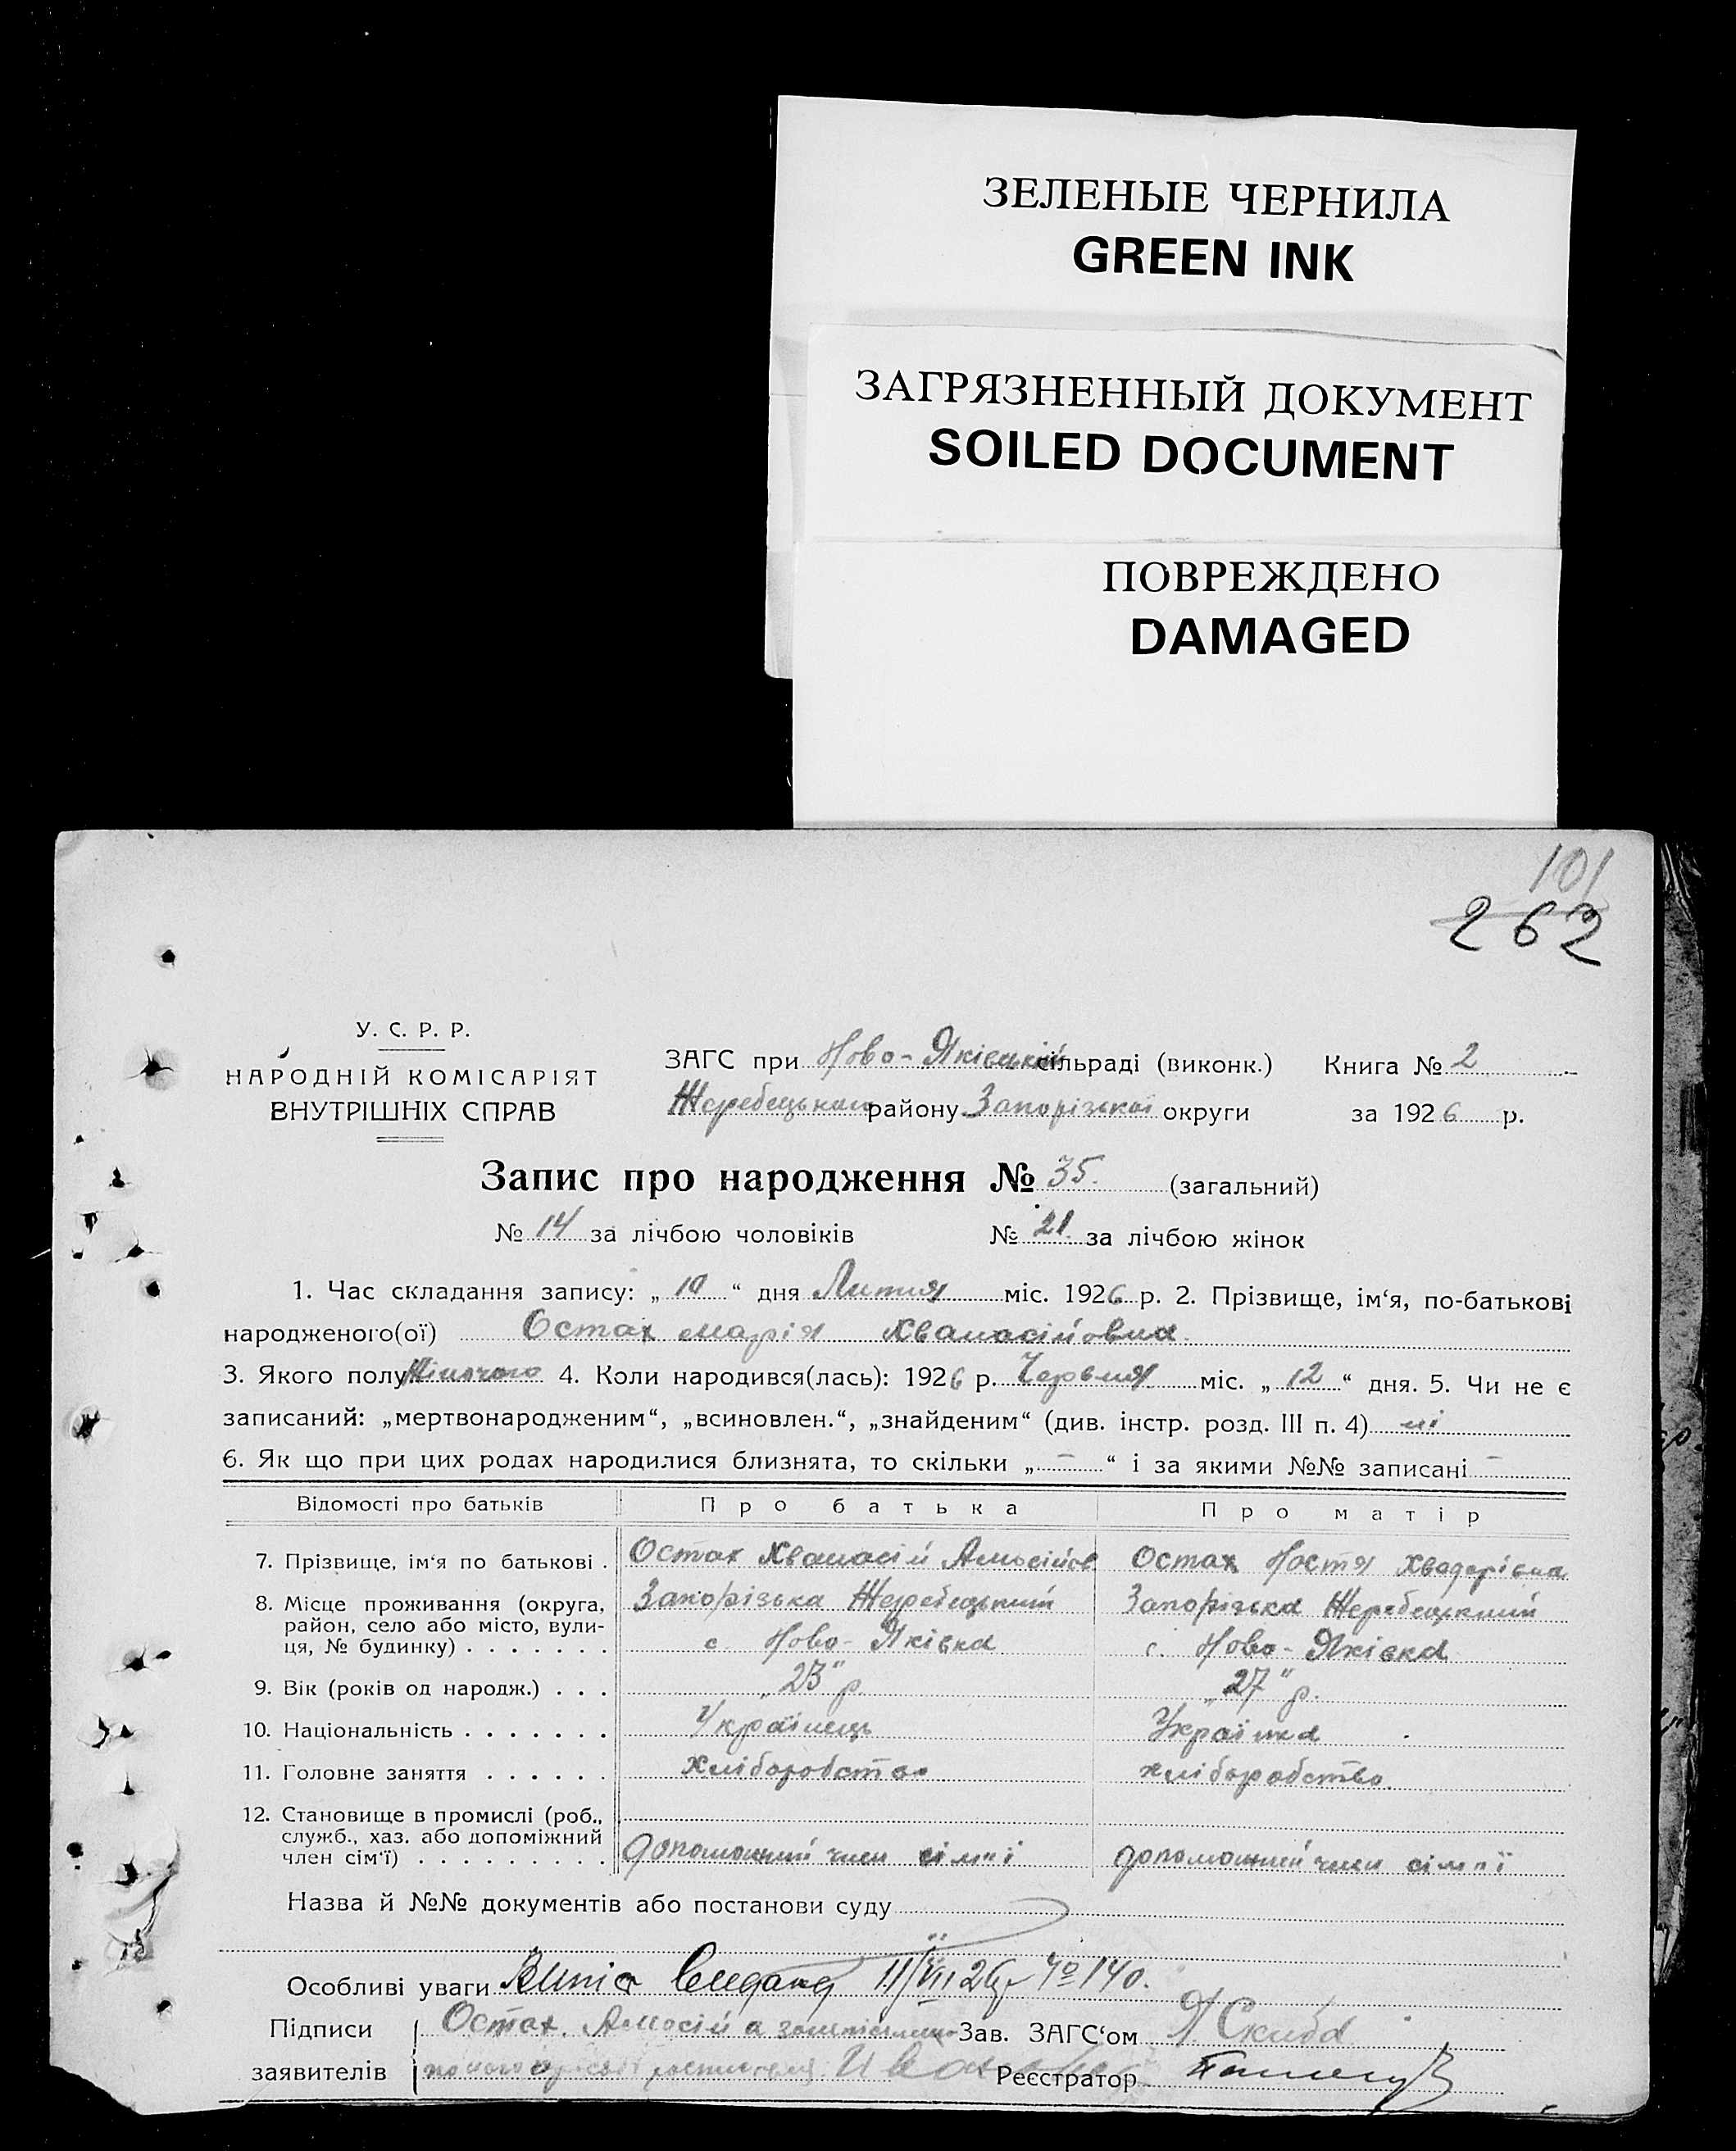 ЗЕЛЕНЫЕ ЧЕРНИЛА
GREEN INK
ЗАГРЯЗНЕННЫЙ ДОКУМЕНТ
SOILED DOCUMENT
ПОВРЕЖДЕНО
DAMAGED
101
262
У. С. Р. Р.
НАРОДНІЙ КОМІСАРІЯТ
ВНУТРІШНІХ СПРАВ
ЗАГС при Ново-Яківській сільраді (виконк.) Книга № 2
Жеребецького району Запорізької округи за 1926 р.
Запис про народження № 35. (загальний)
№ 14 за лічбою чоловіків № 21. за лічбою жінок
1. Час складання запису: „ 10 “ дня Липня міс. 1926 р. 2. Прізвище, ім‘я, по-батькові
народженого(ої) Остах Марія Хванасійовна
3. Якого полу Жіночого 4. Коли народився(лась): 1926 р. Червня міс. „ 12 “ дня. 5. Чи не є
записаний: „мертвонародженим“, „всиновлен.“, „знайденим“ (див. інстр. розд. III п. 4) ні
6. Як що при цих родах народилися близнята, то скільки „ – “ і за якими №№ записані –
Відомості про батьків Про батька Про матір
7. Прізвище, ім‘я по батькові . Остах Хванасій Амосійов Остах Настя Хведорівна
8. Місце проживання (округа, Запорізька Жеребецький Запорізька Жеребецький
район, село або місто, вули-
ця, № будинку) . . . . . . . с Ново-Яківка с. Ново-Яківка
9. Вік (років од народж.) . . . „23“ р. „27“ р.
10. Національність . . . . . . . Українець Українка
11. Головне заняття . . . . . . хліборобство хліборобство.
12. Становище в промислі (роб.,
служб., хаз. або допоміжний
член сім‘ї) . . . . . . . . . допоможний член сімпї допоможний член сімпї
Назва й №№ документів або постанови суду
Особливі уваги № 140.
Підписи Остах. Амосій а Зав. ЗАГС‘ом Скиба
заявителів Реєстратор